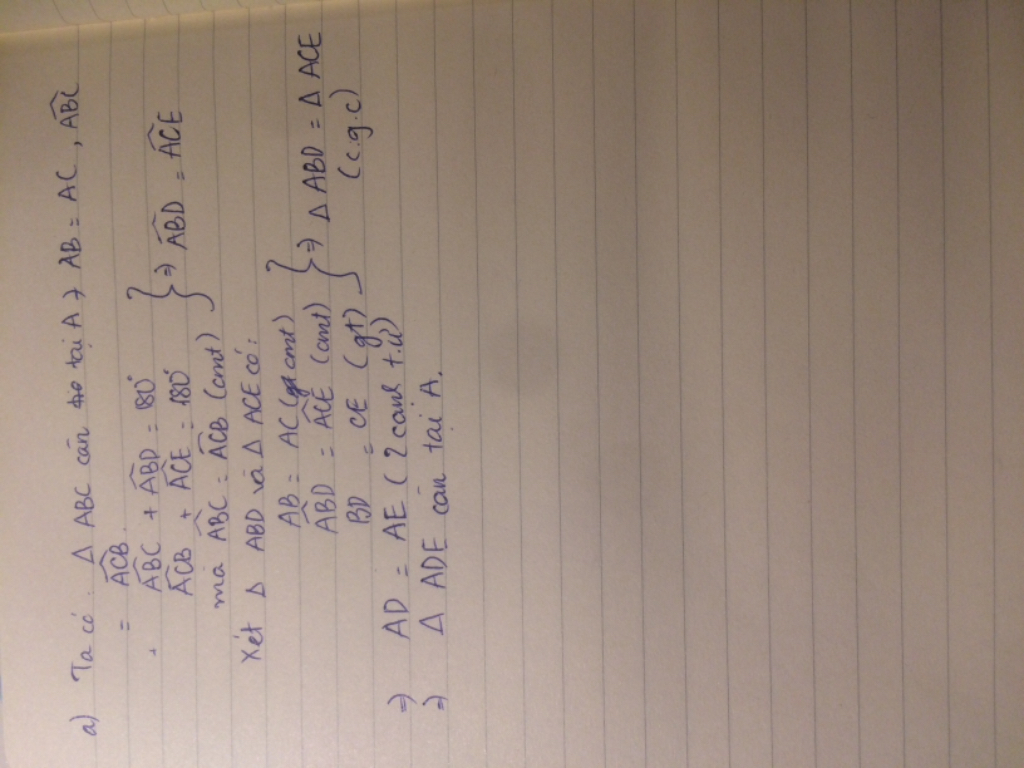 a) Ta có : Δ ABC cân tại A → AB = AC , ABC
= ACB.
. ABC + ABD = 180°
ACB + ACE = 180° } ⇒ ABD = ACE
mà ABC = ACB (cmt)
Xét Δ ABD và Δ ACE có:
AB = AC ( cmt)
ABD = ACE (cmt) } ⇒ Δ ABD = Δ ACE
BD = CE (gt) (c.g.c)
⇒ AD = AE ( 2 cạnh t.ư)
⇒ Δ ADE cân tại A.